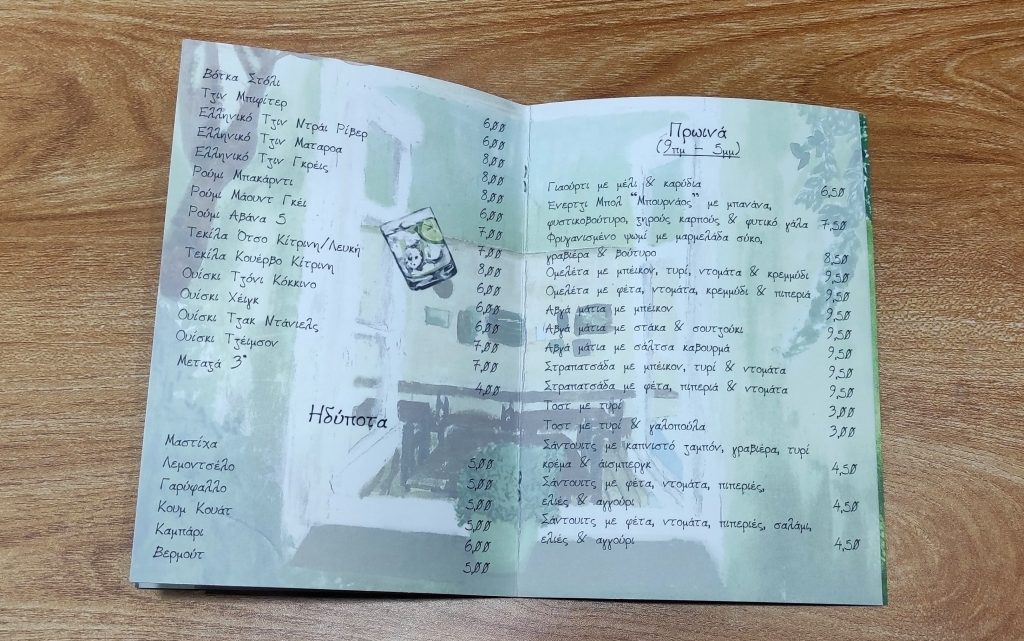 Βότκα Στόλι 6,00
Τζιν Μπιφίτερ 6,00
Ελληνικό Τζιν Ντράι Ρίβερ 8,00
Ελληνικό Τζιν Ματαρόα 8,00
Ελληνικό Τζιν Γκρέις 8,00
Ρούμι Μπακάρντι 6,00
Ρούμι Μάουντ Γκέι 7,00
Ρούμι Αβάνα 5 7,00
Τεκίλα Ότσο Κίτρινη/Λευκή 8,00
Τεκίλα Κουέρβο Κίτρινη 6,00
Ουίσκι Τζόνι Κόκκινο 6,00
Ουίσκι Χέιγκ 6,00
Ουίσκι Τζακ Ντάνιελς 7,00
Ουίσκι Τζέιμσον 7,00
Μεταξά 3* 4,00
Ηδύποτα
Μαστίχα 5,00
Λεμοντσέλο 5,00
Γαρύφαλλο 5,00
Κουμ Κουάτ 5,00
Καμπάρι 6,00
Βερμούτ 5,00
Πρωινά
(9πμ – 5μμ)
Γιαούρτι με μέλι & καρύδια 6,50
Ένερτζι Μπολ "Μπουρνάος" με μπανάνα,
φυστικοβούτυρο, ξηρούς καρπούς & φυτικό γάλα 7,50
Φρυγανισμένο ψωμί με μαρμελάδα σύκο,
γραβιέρα & βούτυρο 8,50
Ομελέτα με μπέικον, τυρί, ντομάτα & κρεμμύδι 9,50
Ομελέτα με φέτα, ντομάτα, κρεμμύδι & πιπεριά 9,50
Αβγά μάτια με μπέικον 9,50
Αβγά μάτια με στάκα & σουτζούκι 9,50
Αβγά μάτια με σάλτσα καβουρμά 9,50
Στραπατσάδα με μπέικον, τυρί & ντομάτα 9,50
Στραπατσάδα με φέτα, πιπεριά & ντομάτα 9,50
Τοστ με τυρί 3,00
Τοστ με τυρί & γαλοπούλα 3,00
Σάντουιτς με καπνιστό ζαμπόν, γραβιέρα, τυρί
κρέμα & άισμπεργκ 4,50
Σάντουιτς με φέτα, ντομάτα, πιπεριές,
ελιές & αγγούρι 4,50
Σάντουιτς με φέτα, ντομάτα, πιπεριές, σαλάμι,
ελιές & αγγούρι 4,50